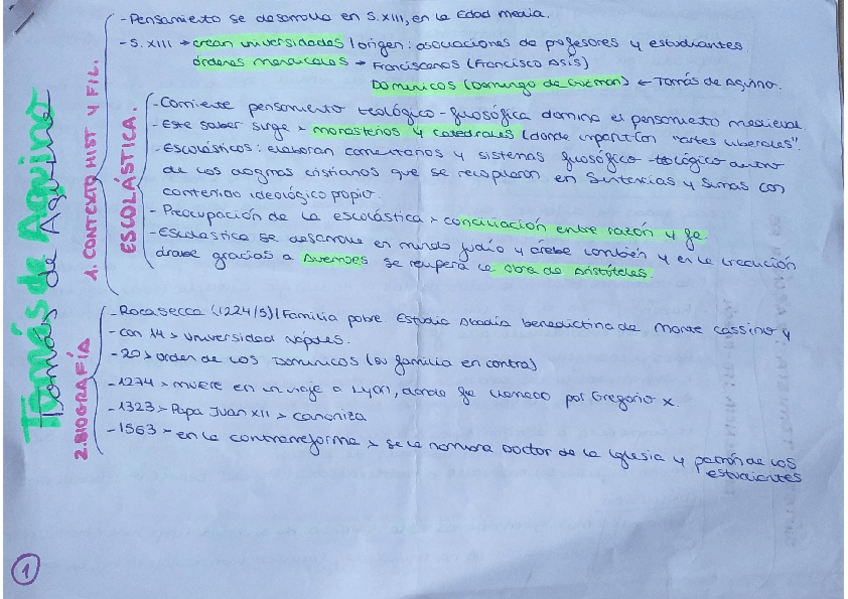 Tomás de Aquino
1. CONTEXTO HIST Y FIL.
- Pensamiento se desarrolla en S.XIII, en la Edad media.
- S. XIII → crean universidades / origen: asociaciones de profesores y estudiantes
órdenes → Franciscanos (Francisco Asís)
Dominicos (Domingo de Guzmán) ← Tomás de Aquino.
ESCOLÁSTICA.
- Corriente pensamiento teológico-filosófica domina el pensamiento medieval
- Este saber surge > monasterios y catedrales (donde impartían "artes liberales".
- Escolásticos: elaboran comentarios y sistemas filosófico-teológico dentro
de los dogmas cristianos que se recopilaron en Sentencias y Sumas con
contenido ideológico propio.
- Preocupación de la escolástica > conciliación entre razón y fe
- Escolástica se desarrolla en mundo judío y árabe también y en la tradución
árabe gracias a Averroes se recupera la obra de Aristóteles.
2. BIOGRAFÍA
- Rocasecca (1224/5) / Familia pobre. Estudia Abadía benedictina de Monte Cassino y
- con 14 > universidad nápoles.
- 20 > orden de los Dominicos (su familia en contra)
- 1274 > muere en un viaje a Lyon, donde fue llamado por Gregorio X.
- 1323 > Papa Juan XII > canoniza
- 1563 > en la contrarreforma > se le nombra Doctor de la Iglesia y patrón de los
estudiantes
1